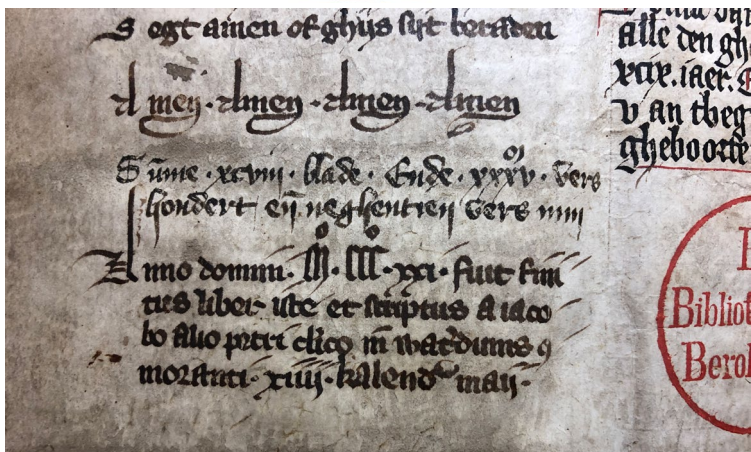 S egt amen of ghijs sijt beraden
A men · Amen · Amen · Amen
Sūme · xcviii · blade · Ende · xxxv · vers
hondert eñ neghentien vers min
Anno domini · M · CCC · xxi · fuit fini
tus liber iste et scriptus a iaco
bo filio petri
moranti · xiiii · kalend maii ·
alle den
xcix. iaer.
v an tbeg
gheboorte
Bibliot
Berol